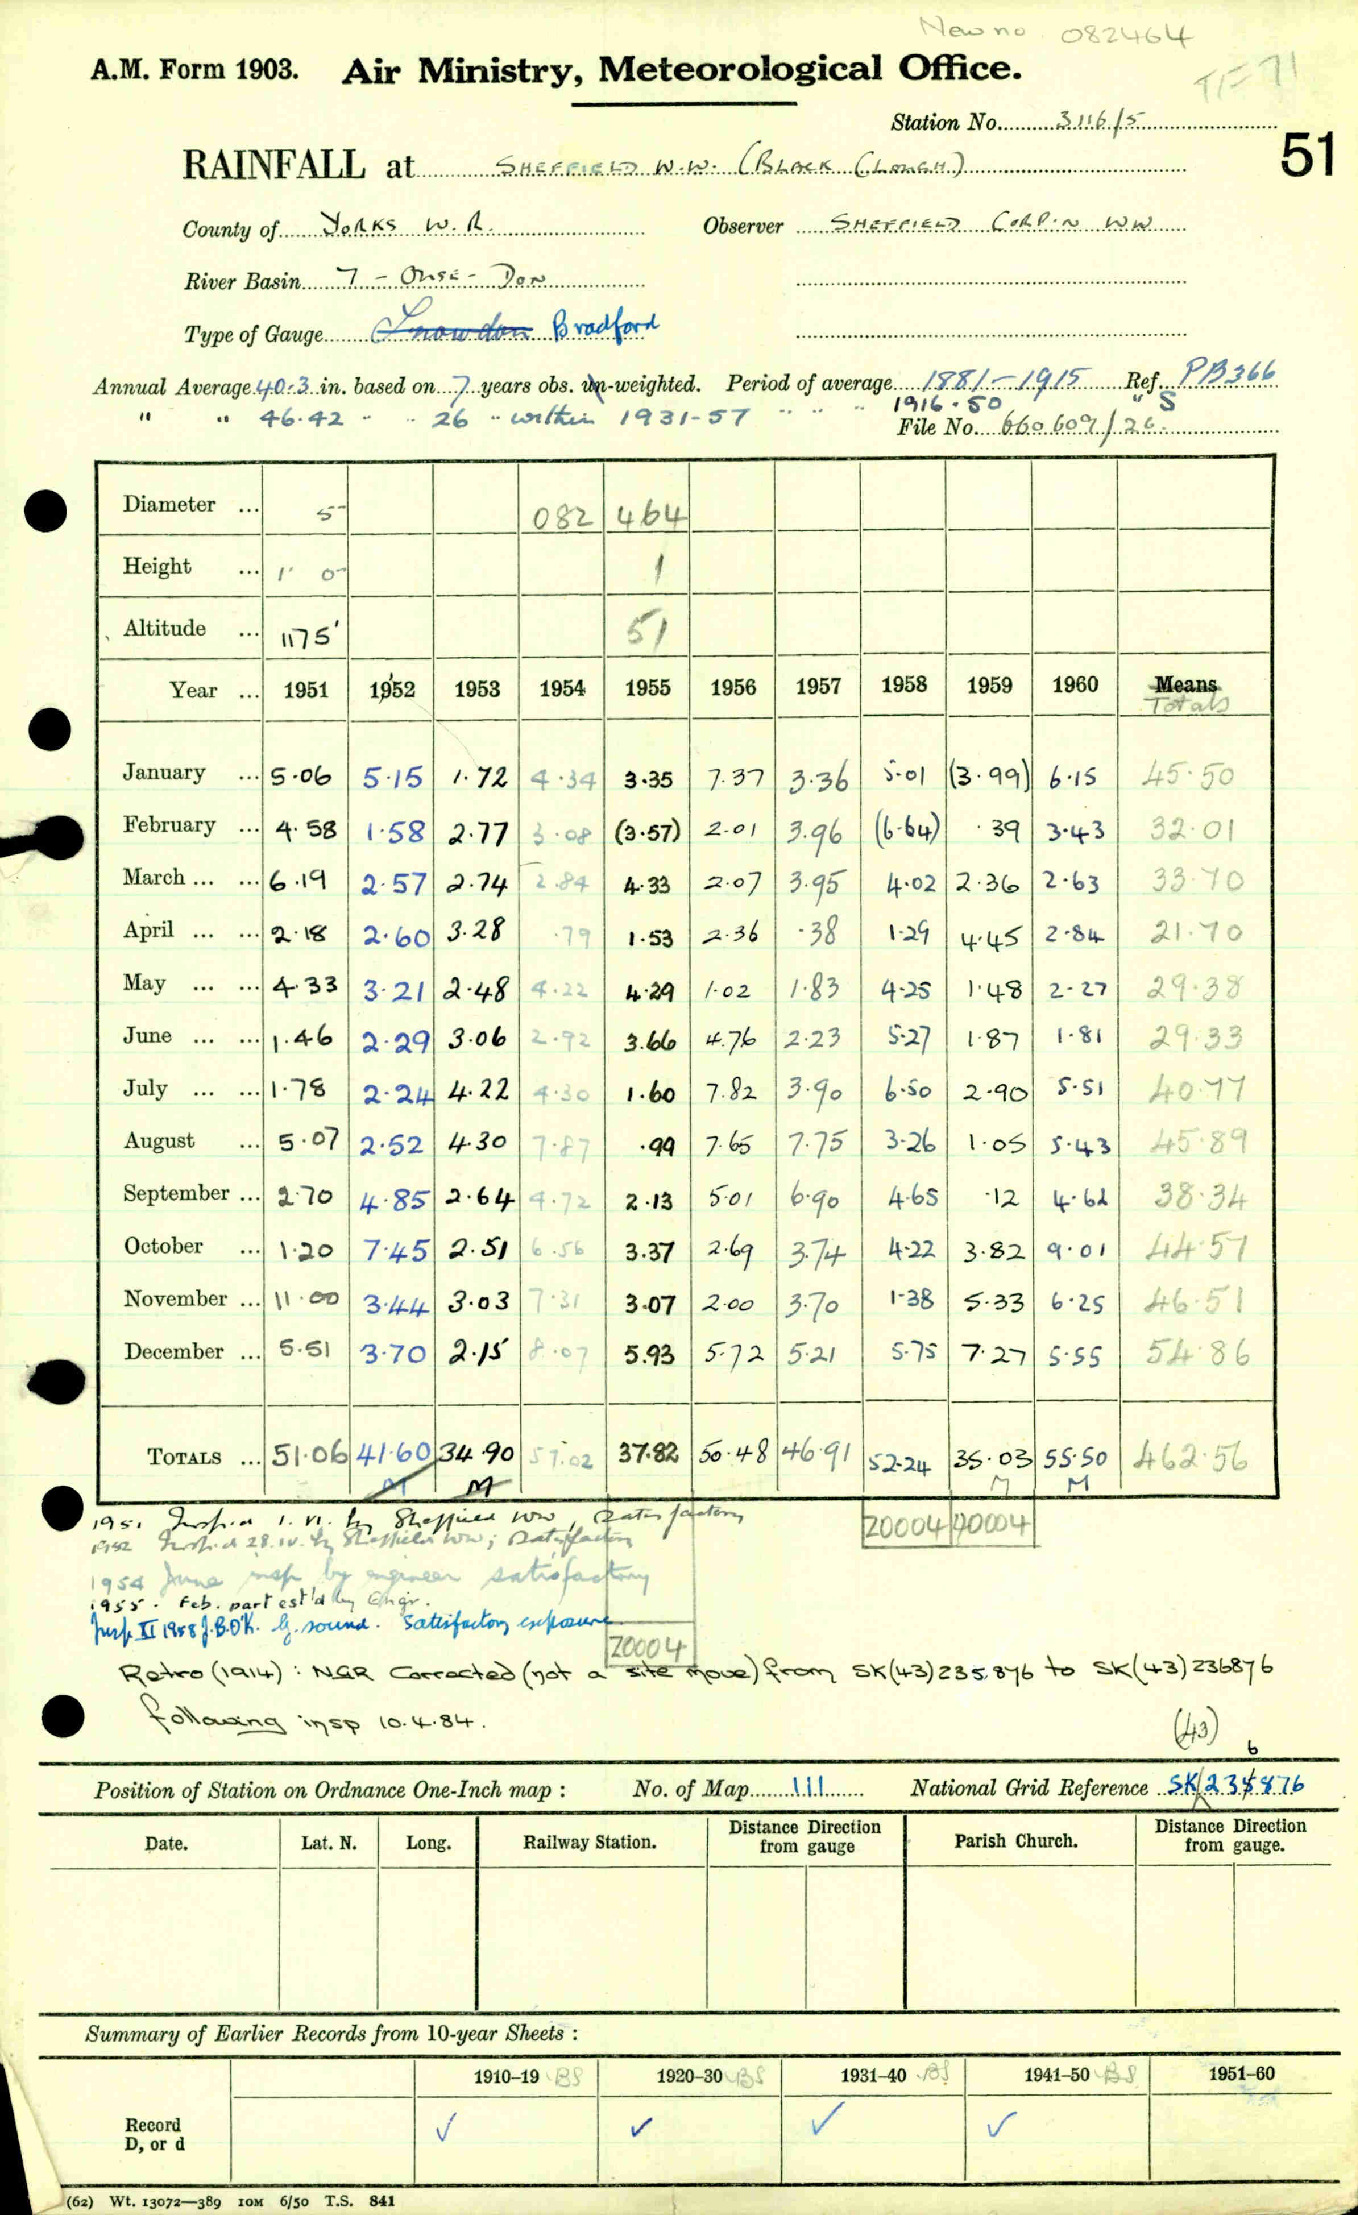 New no 082464
A.M. Form 1903. Air Ministry, Meteorological Office.
Station No. 3116/5
51
RAINFALL at SHEFFIELD W.W. (BLACK CLOUGH)
County of YORKS W.R. Observer SHEFFIELD CORP'N WW
River Basin 7 - OUSE - DON
Type of Gauge Snowdon Bradford
Annual Average 40.3 in. based on 7 years obs. un-weighted. Period of average 1881-1915 Ref. PB366
" " 46.42 " " 26 " within 1931-57 " " " 1916-50 " S
File No. 660609/26
Diameter ... 5 082 464
Height ... 1' 0 1
Altitude ... 1175' 51
Year ... 1951 1952 1953 1954 1955 1956 1957 1958 1959 1960 Means
Totals
January ... 5.06 5.15 1.72 4.34 3.35 7.37 3.36 5.01 (3.99) 6.15 45.50
February ... 4.58 1.58 2.77 3.08 (3.57) 2.01 3.96 (6.64) .39 3.43 32.01
March ... ... 6.19 2.57 2.74 2.84 4.33 2.07 3.95 4.02 2.36 2.63 33.70
April ... ... 2.18 2.60 3.28 .79 1.53 2.36 .38 1.29 4.45 2.84 21.70
May ... ... 4.33 3.21 2.48 4.22 4.29 1.02 1.83 4.25 1.48 2.27 29.38
June ... ... 1.46 2.29 3.06 2.92 3.66 4.76 2.23 5.27 1.87 1.81 29.33
July ... ... 1.78 2.24 4.22 4.30 1.60 7.82 3.90 6.50 2.90 5.51 40.77
August ... 5.07 2.52 4.30 7.87 .99 7.65 7.75 3.26 1.05 5.43 45.89
September ... 2.70 4.85 2.64 4.72 2.13 5.01 6.90 4.65 .12 4.62 38.34
October ... 1.20 7.45 2.51 6.56 3.37 2.69 3.74 4.22 3.82 9.01 44.57
November ... 11.00 3.44 3.03 7.31 3.07 2.00 3.70 1.38 5.33 6.25 46.51
December ... 5.51 3.70 2.15 8.07 5.93 5.72 5.21 5.75 7.27 5.55 54.86
TOTALS ... 51.06 41.60 34.90 57.02 37.82 50.48 46.91 52.24 35.03 55.50 462.56
M M M M
1951 Insp'd 1.VI. by Sheffield WW, Satisfactory
20004 90004
1952 Insp'd 28.IV. by Sheffield WW; Satisfactory
1954 June insp by engineer satisfactory
1955. Feb. part est'd by Engr.
Insp. II 1958 J.B.O'K. G. sound. Satisfactory exposure
20004
Retro (1914) : NGR Corrected (not a site move) from SK(43)235876 to SK(43)236876
following insp 10.4.84.
(43)
6
Position of Station on Ordnance One-Inch map : No. of Map 111 National Grid Reference SK/235876
Date. Lat. N. Long. Railway Station. Distance Direction from gauge Parish Church. Distance Direction from gauge.
Summary of Earlier Records from 10-year Sheets :
1910-19 BS 1920-30 BS 1931-40 BS 1941-50 BS 1951-60
Record
D, or d
✓ ✓ ✓ ✓
(62) Wt. 13072—389 10M 6/50 T.S. 841